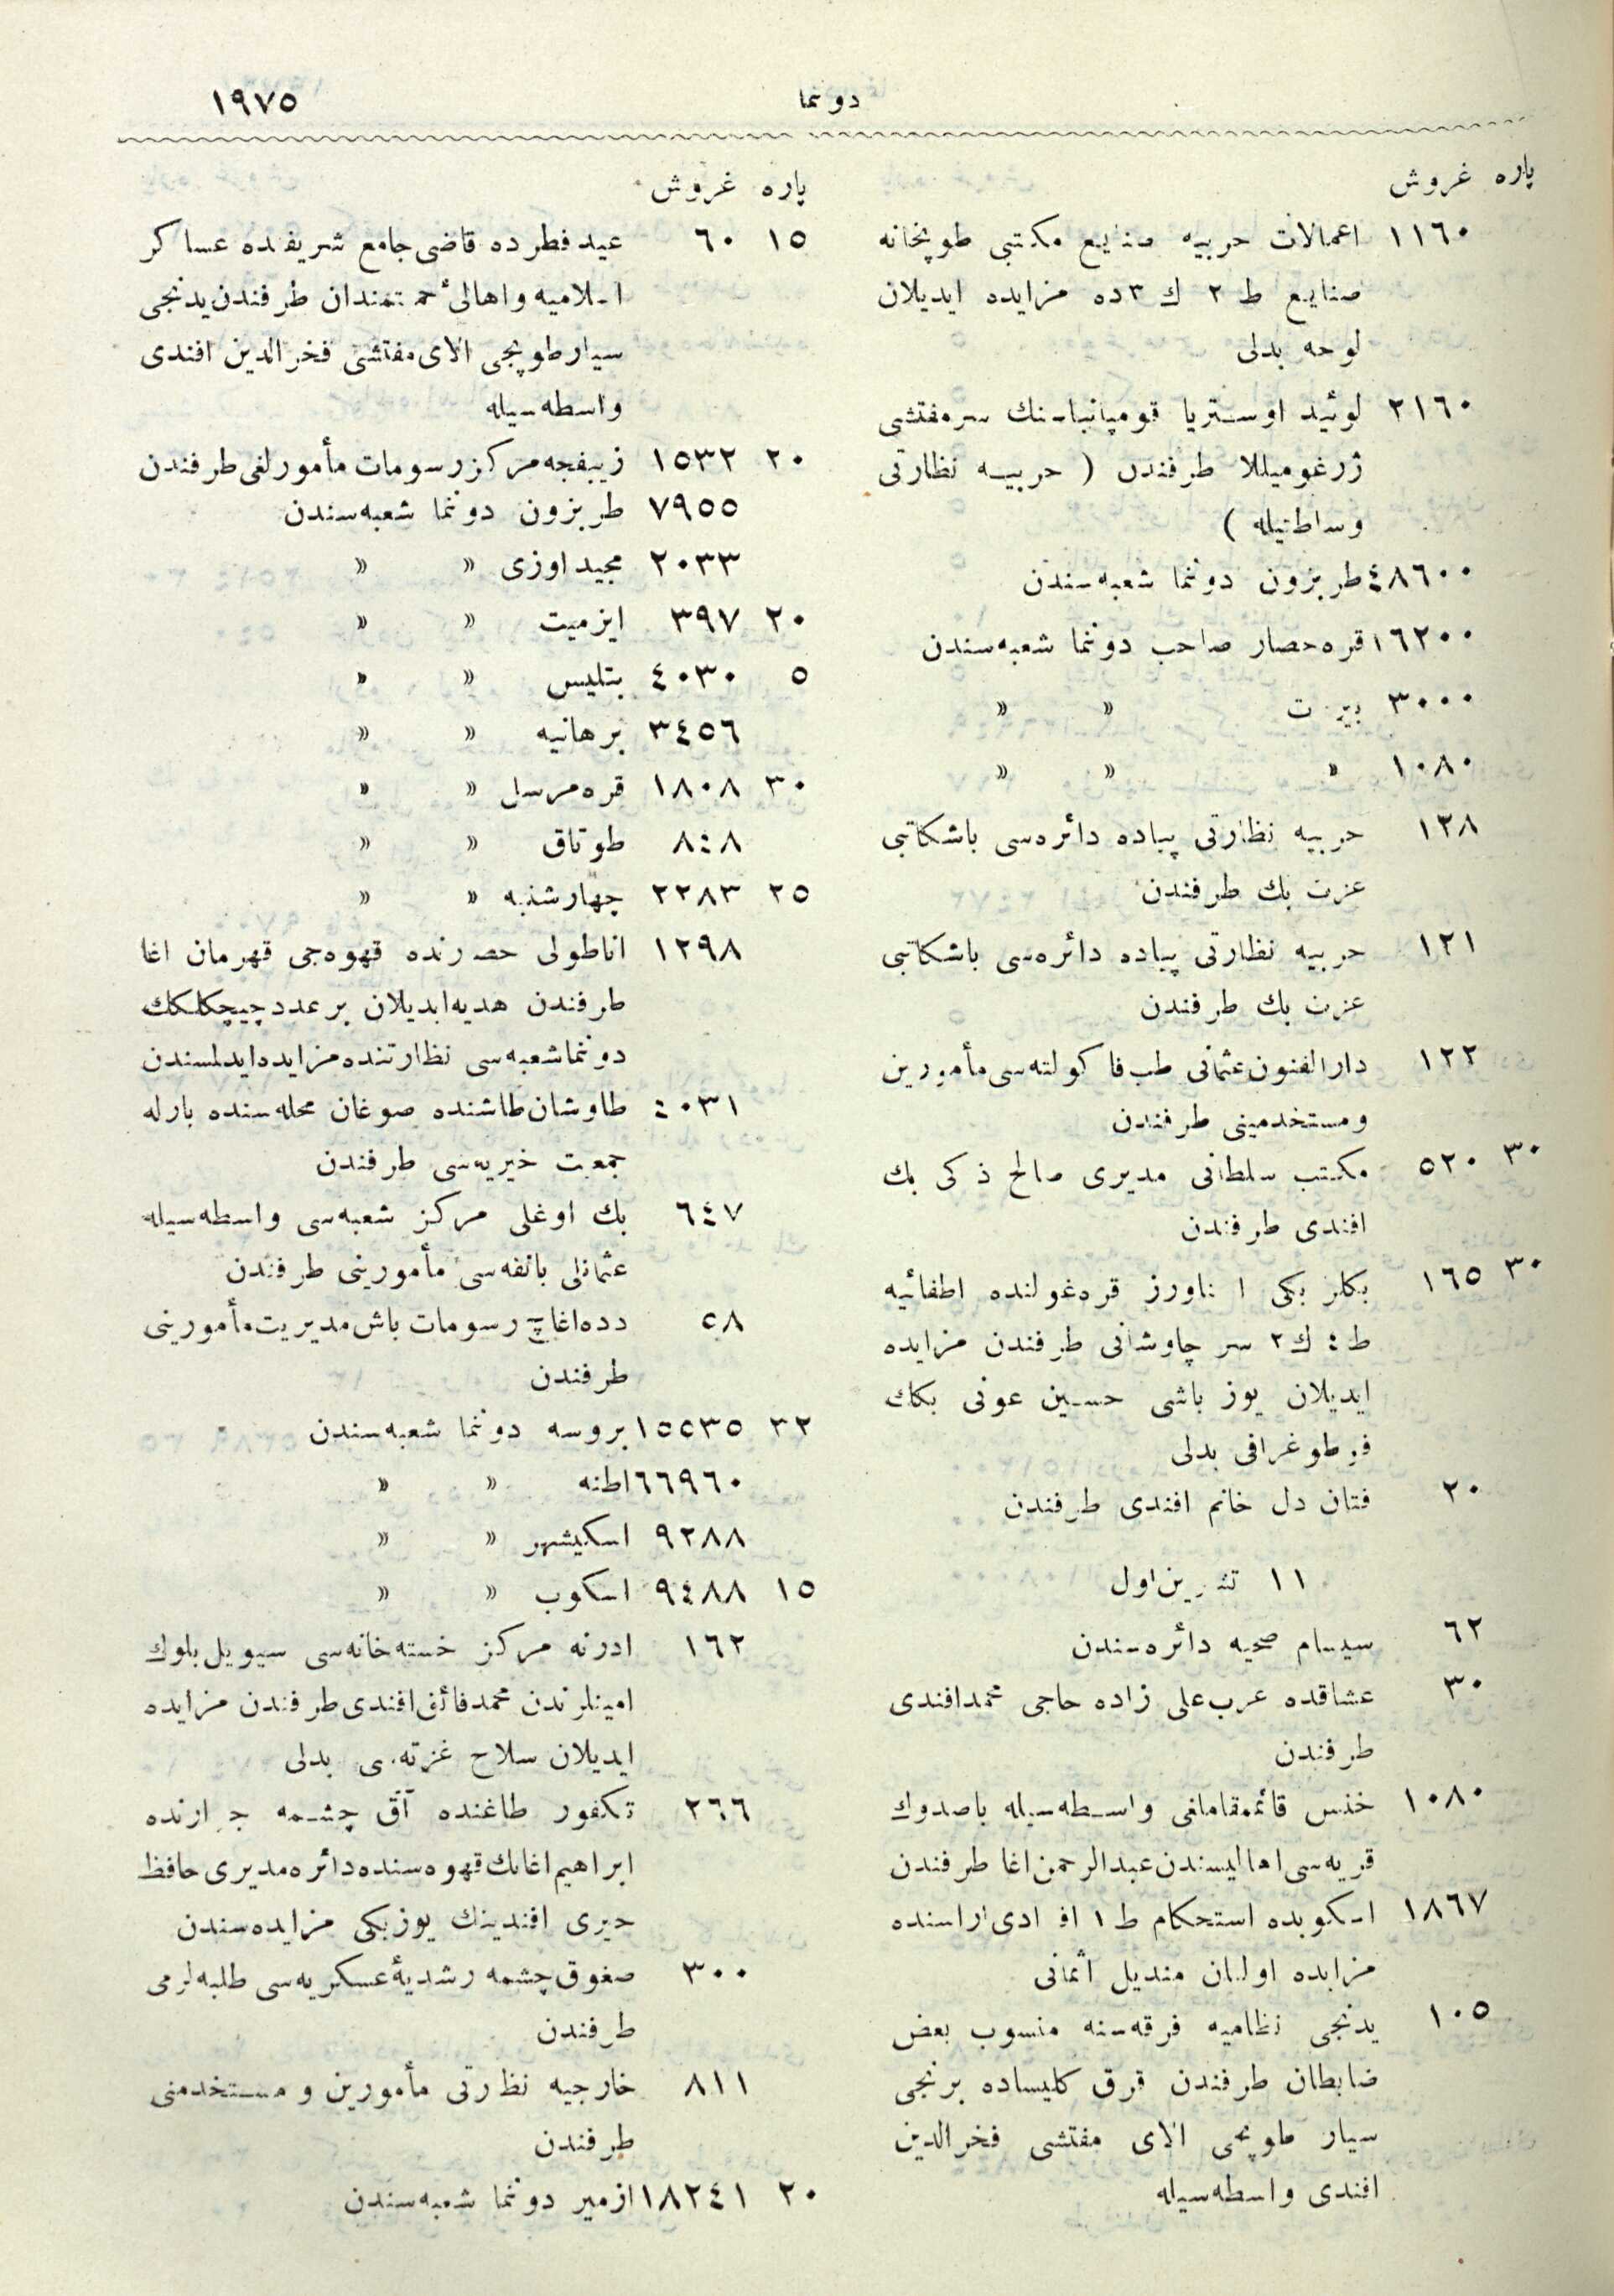 دونما
١٩٧٥
پاره غروش
١١٦٠ اعمالات حربیه صنایع مکتبی طوپخانه
صنایع ط ٢ ك ٣ده مزایده ایدیلان
لوحه بدلی
٢١٦٠ لوئید اوستریا قومپانیاسنك سرمفتشی
ژرغومیللا طرفندن ( حربیه نظارتی
وساطتیله )
٤٨٦٠٠ طربزون دونما شعبه‌سندن
١٦٢٠٠ قره‌حصار صاحب دونما شعبه‌سندن
٣٠٠٠ » »
١٠٨٠ » » »
١٣٨ حربیه نظارتی پیاده دائره‌سی باشکاتبی
عزت بك طرفندن
١٢١ حربیه نظارتی پیاده دائره‌سی باشکاتبی
عزت بك طرفندن
١٢٢ دارالفنون عثمانی طب فاکولته‌سی مأمورین
ومستخدمینی طرفندن
٣٠ ٥٢٠ مکتب سلطانی مدیری صالح ذکی بك
افندی طرفندن
٣٠ ١٦٥ بکلربکی قره‌غولنده اطفائیه
ط ٤ ك ٢ سر چاوشانی طرفندن مزایده
ایدیلان یوز باشی حسین عونی بکك
فوطوغرافی بدلی
٢٠ فتان دل خانم افندی طرفندن
١١ تشرین اول
٦٢ سیسام صحیه دائره‌سندن
٣٠ عشاقده عرب علی زاده حاجی محمد افندی
طرفندن
١٠٨٠ خنس قائممقاملغی واسطه‌سیله باصدوك
قریه‌سی اهالیسندن عبدالرحمن اغا طرفندن
١٨٦٧ اسکوبده استحکام ط ١ افرادی اراسنده
مزایده اولنان مندیل اثمانی
١٠٥ یدنجی نظامیه فرقه‌سنه منسوب بعض
ضابطان طرفندن قرق کلیساده برنجی
سیار طوپچی الای مفتشی فخرالدین
افندی واسطه‌سیله
پاره غروش
١٥ ٦٠ عید فطرده قاضی جامع شریفنده عساکر
اسلامیه واهالئ حمیتمندان طرفندن یدنجی
سیار طوپچی الای مفتشی فخر الدین افندی
واسطه‌سیله
٢٠ ١٥٣٢ زیبفجه مرکز رسومات مأمورلغی طرفندن
٧٩٥٥ طربزون دونما شعبه‌سندن
٢٠٣٣ مجید اوزی » »
٢٠ ٣٩٧ ایزمیت » »
٥ ٤٠٣٠ بتلیس » »
٣٤٥٦ برهانیه » »
٣٠ ١٨٠٨ قره‌مرسل » »
٨٤٨ طوتاق » »
٢٥ ٢٢٨٣ چهارشنبه » »
١٢٩٨ اناطولی حصارنده قهوه‌جی قهرمان اغا
طرفندن هدیه ایدیلان بر عدد چیچکلکك
دونما شعبه‌سی نظارتنده مزایده ایدلمسندن
٤٠٣١ طاوشان طاشنده صوغان محله‌سنده بارله
جمعیت خیریه‌سی طرفندن
٦٤٧ بك اوغلی مرکز شعبه‌سی واسطه‌سیله
عثمانلی بانقه‌سی مأمورینی طرفندن
٥٨ دده‌اغاج رسومات باش مدیریت مأمورینی
طرفندن
٣٢ ١٥٥٣٥ بروسه دونما شعبه‌سندن
٦٦٩٦٠ اطنه » »
٩٢٨٨ اسکیشهر » »
١٥ ٩٤٨٨ اسکوب » »
١٦٢ ادرنه مرکز خسته‌خانه‌سی سیویل بلوك
امینلرندن محمد فائق افندی طرفندن مزایده
ایدیلان سلاح غزته‌سی بدلی
٢٦٦ تکفور طاغنده آق چشمه جوارنده
ابراهیم اغانك قهوه‌سنده دائره مدیری حافظ
افندینك یوزبکی مزایده‌سندن
٣٠٠ صغوق چشمه رشدیهٔ عسکریه‌سی طلبه‌لرمی
طرفندن
٨١١ خارجیه نظارتی مأمورین و مستخدمنی
طرفندن
٢٠ ١٨٢٤١ ازمیر دونما شعبه‌سندن